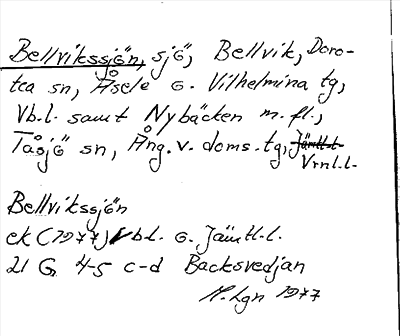 Bellvikssjön, sjö, Bellvik, Doro-
tea sn, Åsele o. Vilhelmina tg,
Vb.l. samt Nybäcken m. fl.,
Tåsjö sn, Ång. v. doms. tg, Jämtl.l.
Vrnl.l.
Bellvikssjön
ek (1977) Vb.l. o. Jämtl.l.
21 G 4-5 c-d Backsvedjan
H. Lgn 1977